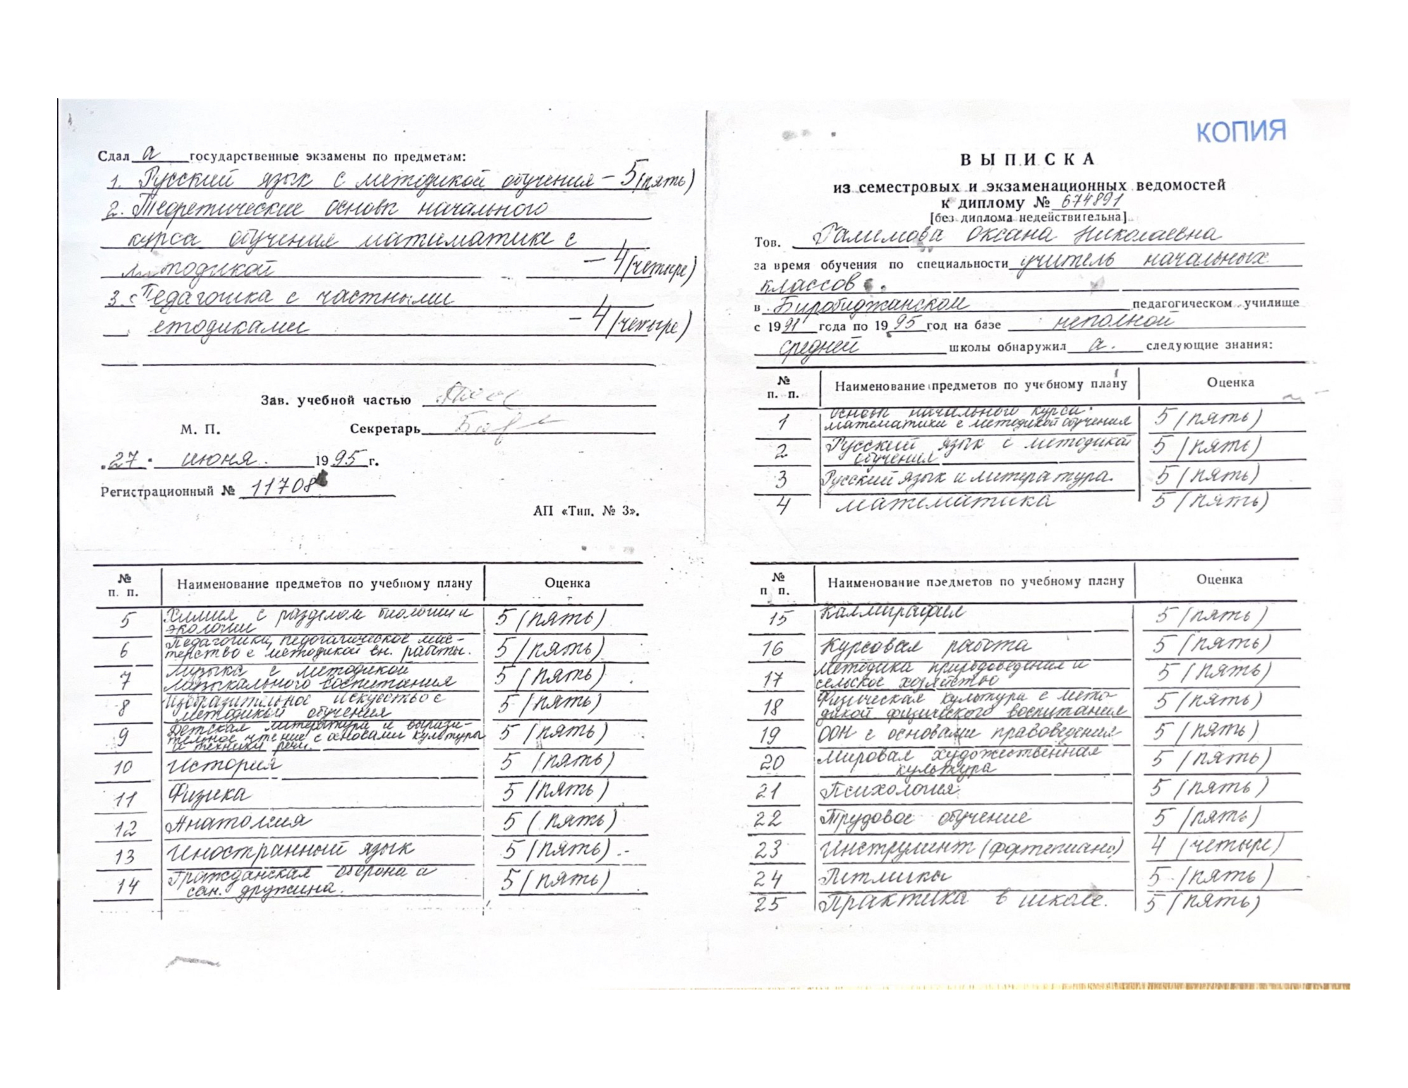 КОПИЯ
Сдал а государственные экзамены по предметам:
1. Русский язык с методикой обучения – 5 (пять)
2. Теоретические основы начального
курса обучения математике с
методикой – 4 (четыре)
3. Педагогика с частными
етодиками – 4 (четыре)
Зав. учебной частью
М. П. Секретарь
„27“ июня 1995 г.
Регистрационный № 11708
АП «Тип. № 3».
ВЫПИСКА
из семестровых и экзаменационных ведомостей
к диплому № 674891
[без диплома недействительна]
Тов. Галимова Оксана Николаевна
за время обучения по специальности учитель начальных
классов
в Биробиджанском педагогическом училище
с 1991 года по 1995 год на базе неполной
средней школы обнаружил а следующие знания:
№ п. п. Наименование предметов по учебному плану Оценка
1 основы начального курса
математики с методикой обучения 5 (пять)
2 Русский язык с методикой
обучения 5 (пять)
3 Русский язык и литература. 5 (пять)
4 математика 5 (пять)
№ п. п. Наименование предметов по учебному плану Оценка
5 Химия с разделом биологии и
экологии 5 (пять)
6 Педагогика, педагогическое мас-
терство с методикой вн. работы. 5 (пять)
7 Музыка с методикой
музыкального воспитания 5 (пять)
8 Изобразительное искусство с
методикой обучения 5 (пять)
9 Детская литература и вырази-
тельное чтение с основами культуры
и техники речи. 5 (пять)
10 История 5 (пять)
11 Физика 5 (пять)
12 Анатомия 5 (пять)
13 Иностранный язык 5 (пять)
14 Гражданская оборона и
сан. дружина. 5 (пять)
№ п. п. Наименование предметов по учебному плану Оценка
15 Каллиграфия 5 (пять)
16 Курсовая работа 5 (пять)
17 Методика природоведения и
сельское хозяйство 5 (пять)
18 Физическая культура с мето-
дикой физического воспитания 5 (пять)
19 ООН с основами правоведения 5 (пять)
20 Мировая художественная
культура 5 (пять)
21 Психология 5 (пять)
22 Трудовое обучение 5 (пять)
23 Инструмент (фортепиано) 4 (четыре)
24 5 (пять)
25 Практика в школе. 5 (пять)